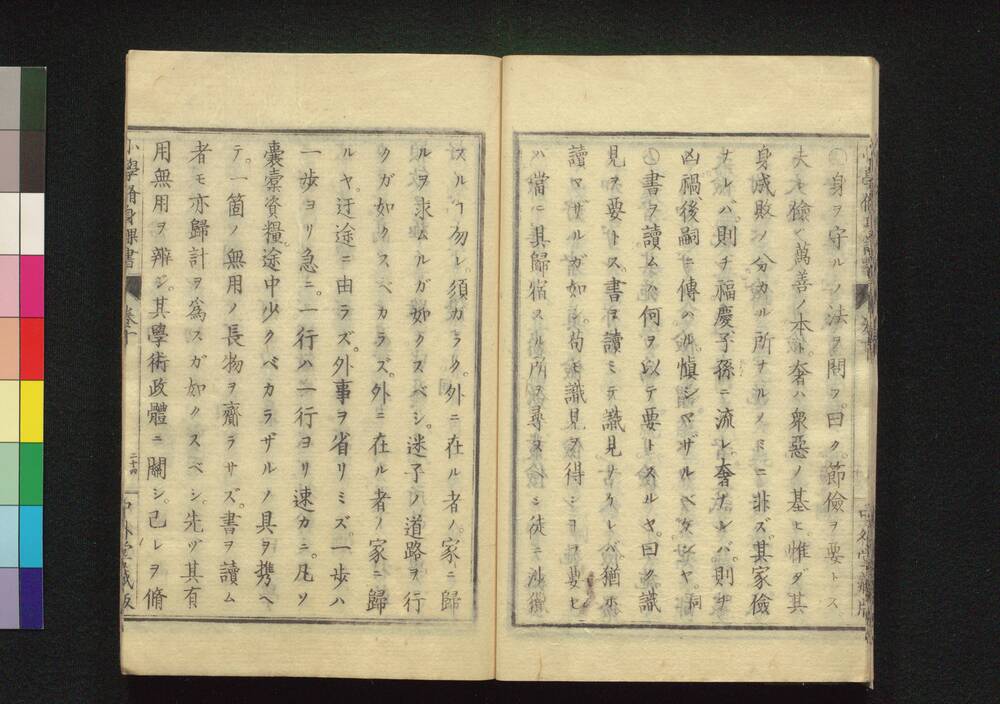 〇身ヲ守ルノ法ヲ問フ。曰ク。節儉ヲ要トス
夫レ儉ハ萬善ノ本ト。奢ハ衆惡ノ基ヒ。惟ダ其
身成敗ノ分カル所ナルノミニ非ズ。其家儉
ナレバ。則チ福慶子孫ニ流レ。奢ナレバ。則チ
凶禍後嗣ニ傳ハル。慎シマザルベケンヤ。同
上書ヲ讀ムハ何ヲ以テ要トスルヤ。曰ク。識
見ヲ要トス。書ヲ讀ミテ識見ナクレバ猶ホ
讀マザルガ如シ。苟モ識見ヲ得シヨヲ要セ
バ當ニ其歸宿スル所ヲ尋ヌベシ徒ニ渉獵
スルヿ勿レ。須カラク。外ニ在ル者ノ。家ニ歸
ルヲ求ムルガ如クスベシ。迷子ノ道路ヲ行
クガ如クスベカラズ。外ニ在ル者ノ家ニ歸
ルヤ。迂途ニ由ラズ。外事ヲ省リミズ。一歩ハ
一歩ヨリ急ニ。一行ハ一行ヨリ速カニ。凡ソ
囊橐資糧。途中少クベカラザルノ具ヲ携ヘ
テ。一箇ノ無用ノ長物ヲ齎ラサズ。書ヲ讀ム
者モ亦歸計ヲ爲スガ如クスベシ。先ヅ其有
用無用ヲ辨ジ。其學術政體ニ關シ。己レヲ脩
小學脩身課書
卷十
二十四
中外堂藏版